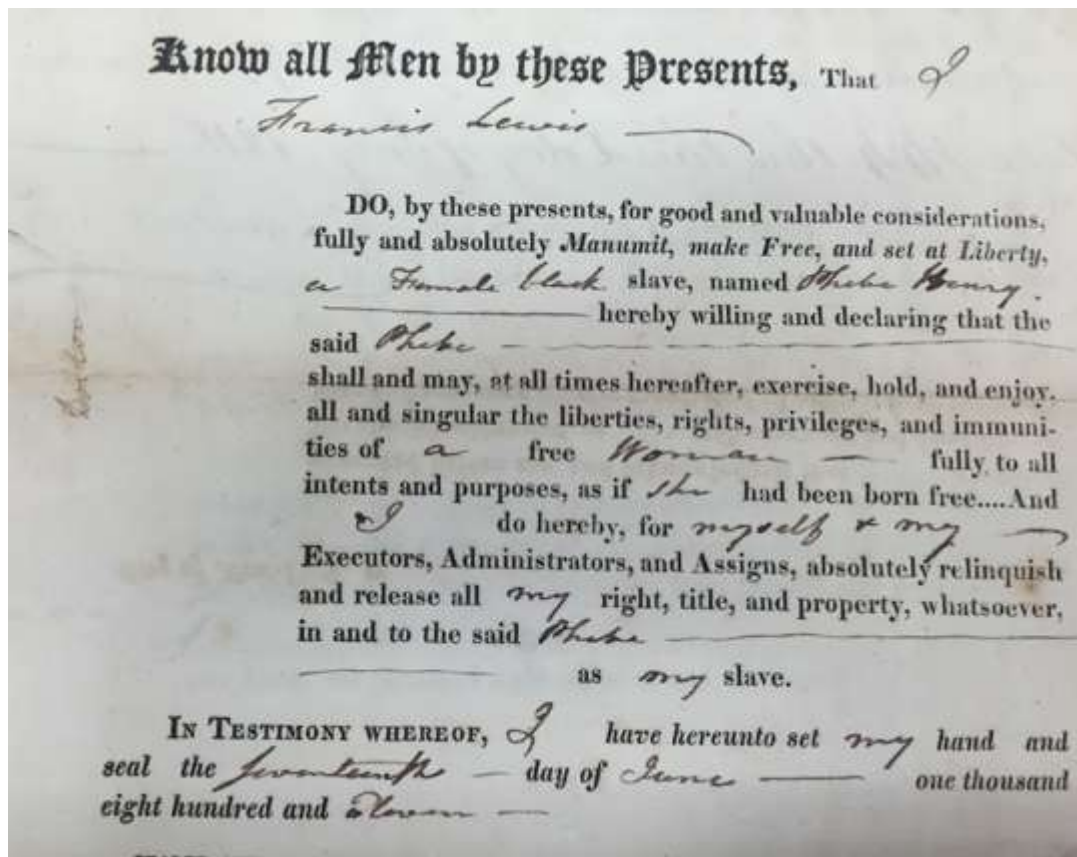 Know all Men by these Presents, That I
Francis Lewis
DO, by these presents, for good and valuable considerations,
fully and absolutely Manumit, make Free, and set at Liberty,
a Female black slave, named Phebe Henry.
hereby willing and declaring that the
said Phebe
shall and may, at all times hereafter, exercise, hold, and enjoy.
all and singular the liberties, rights, privileges, and immuni-
ties of a free Woman fully to all
intents and purposes, as if she had been born free....And
I do hereby, for myself & my
Executors, Administrators, and Assigns, absolutely relinquish
and release all my right, title, and property, whatsoever,
in and to the said Phebe
as my slave.
IN TESTIMONY WHEREOF, I have hereunto set my hand and
seal the seventeenth day of June one thousand
eight hundred and Eleven